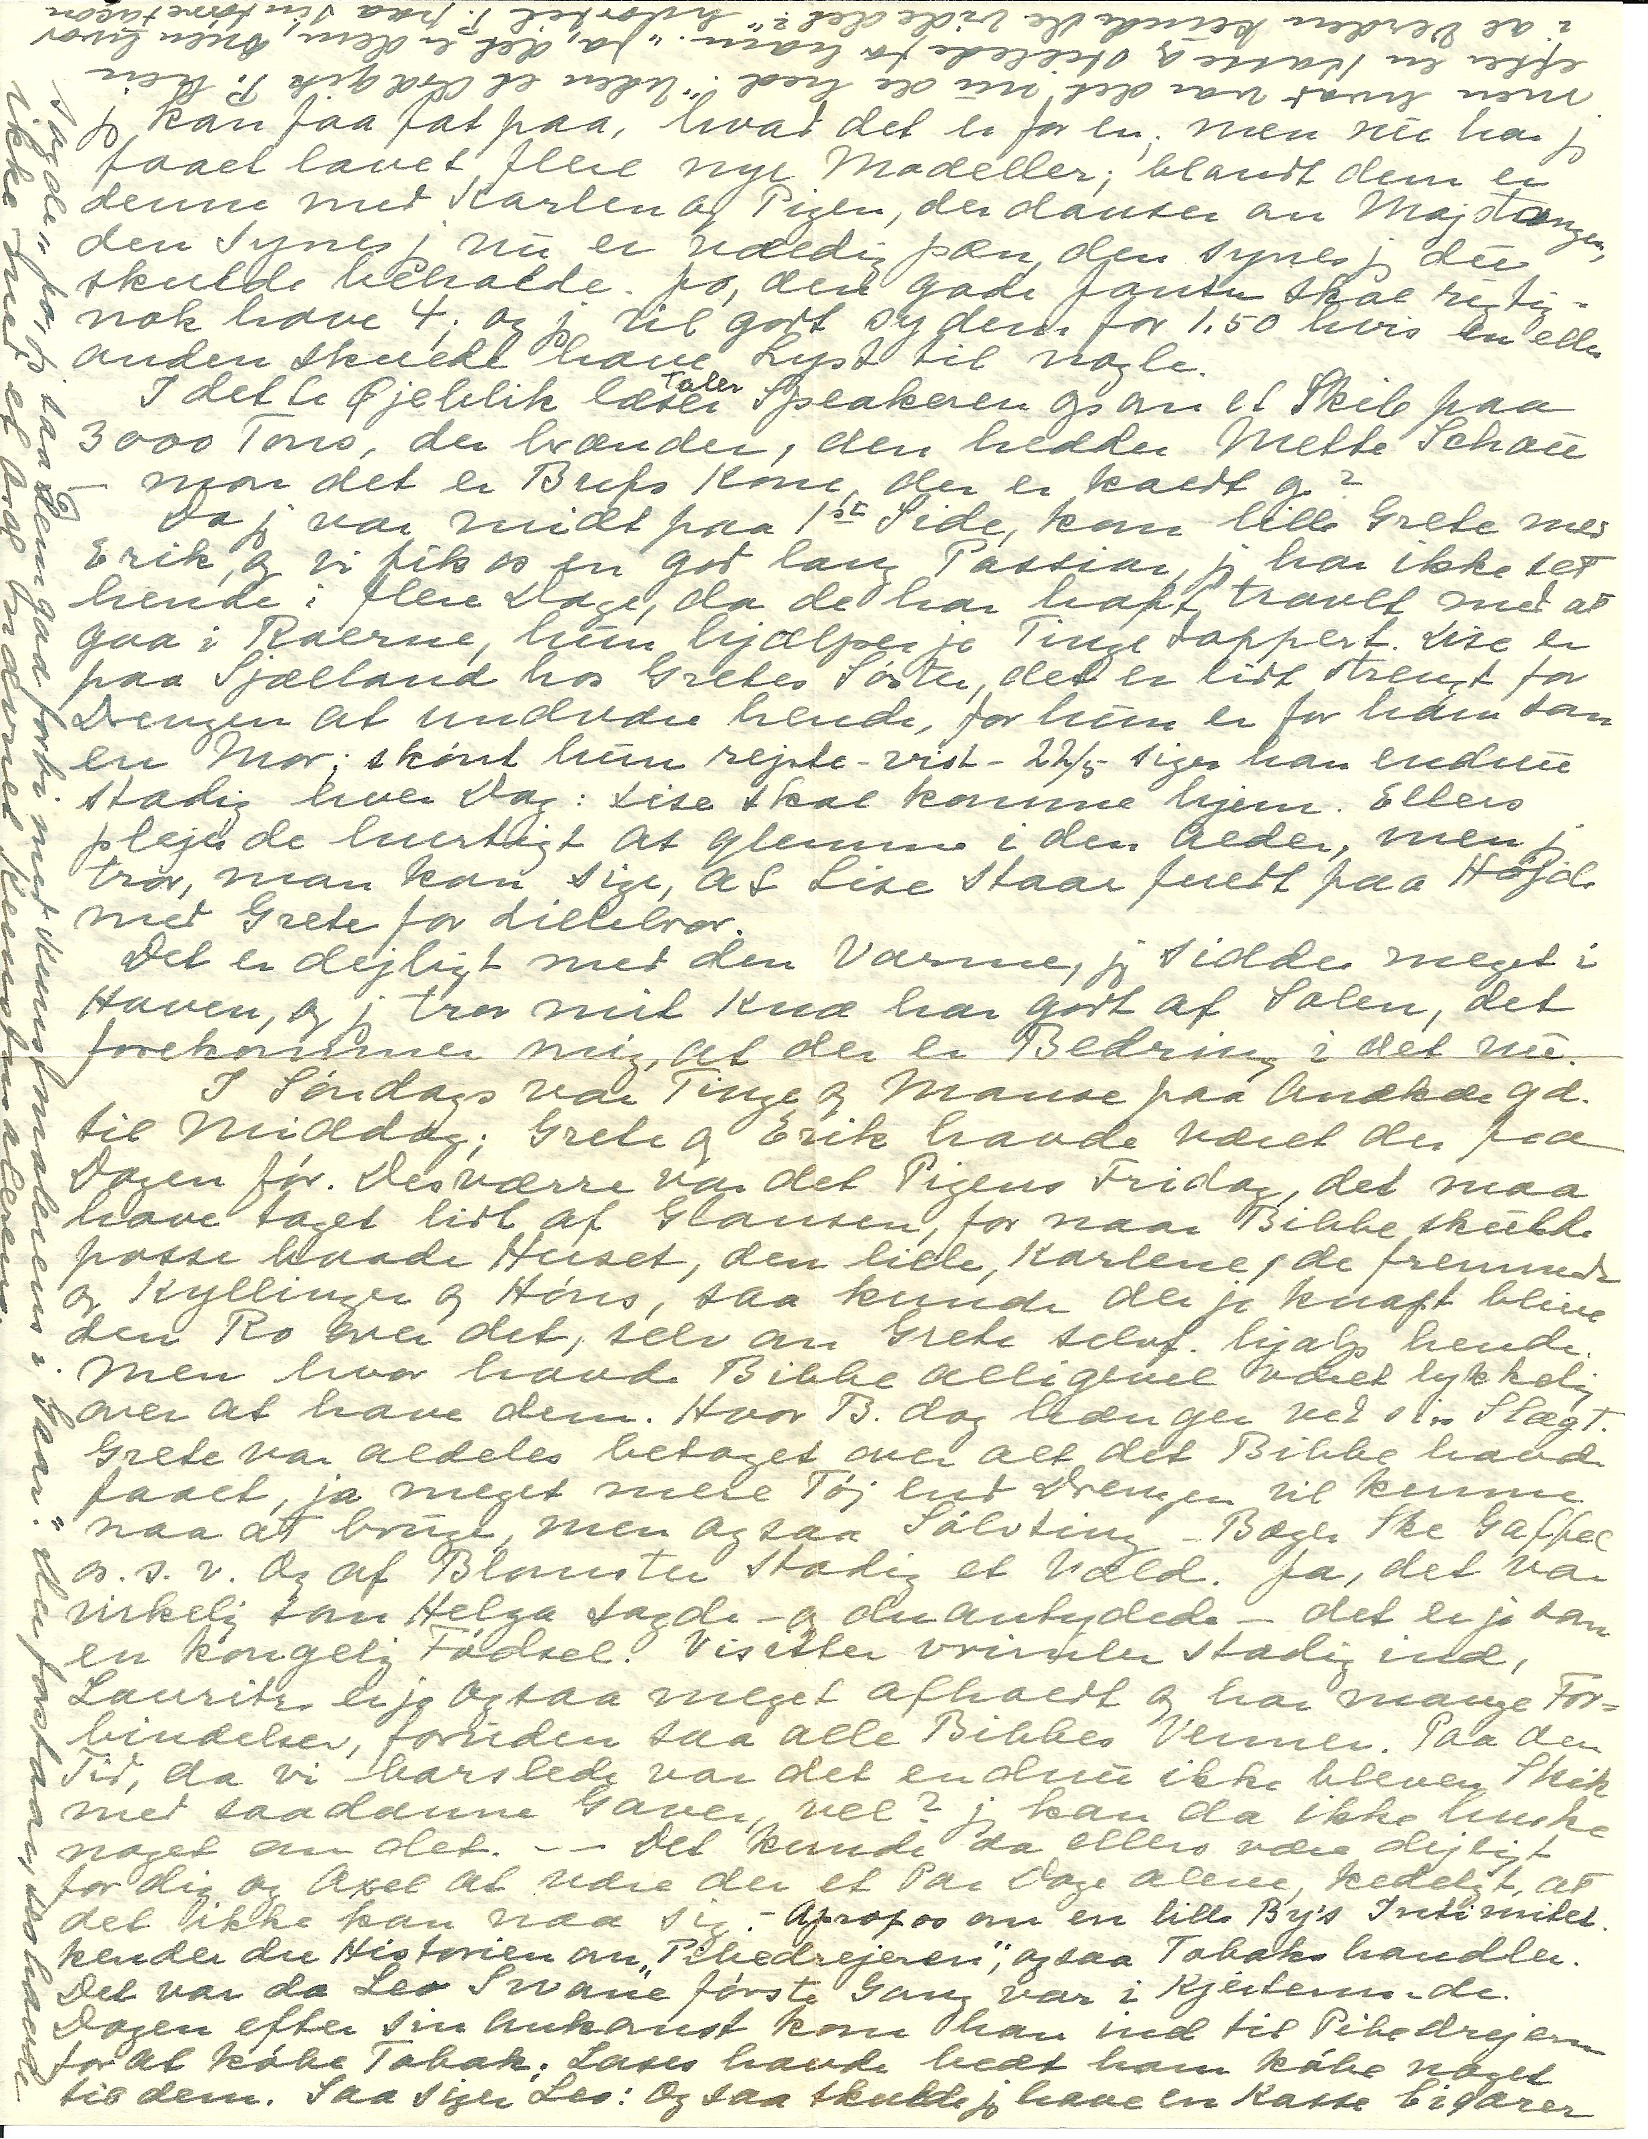 j kan faa fat paa, hvad det er for en; men nu har j
faaet lavet flere nye Modeller; blandt dem er
denne med Karlen og Pigen, der danser om Majstangen,
den synes j nu er vældig pæn, den synes j du
skulde beholde. Jo, den gode Fanta skal rigtig-
nok have 4; og j vil godt sy dem for 1.50 hvis en eller
anden skulde have Lyst til nogle.
I dette Øjeblik læser taler Speakeren os om et Skib paa
3000 Tons, der brænder, den hedder Mette Schou
— mon det er Brefs Kone, der er kaldt op?
Da j var midt paa 1ste Side, kom lille Grete med
Erik, og vi fik os en god lang Passiar, j har ikke set
hende i flere Dage, da de har haft travlt med at
gaa i Roerne, hun hjælper jo Tinge tappert. Lise er
paa Sjælland hos Gretes Søster, det er lidt strengt for
Drengen at undvære hende, for hun er for ham som
en Mor; skønt hun rejste - vist - 22/5 siger han endnu
stadig hver Dag: Lise skal komme hjem. Ellers
plejer de hurtigt at glemme i den Alder, men j
tror, man kan sige, at Lise staar fuldt paa Højde
med Grete for Lillebror.
Det er dejligt med den Varme, j sidder meget i
Haven, og j tror mit Knæ har godt af Solen, det
forekommer mig, at der er Bedring i det nu.
I Søndags var Tinge og Manse paa Andkær gd.
til Middag; Grete og Erik havde været der fra
Dagen før. Desværre var det Pigens Fridag, det maa
have taget lidt af Glansen, for naar Bibbe skulde
passe baade Huset, den lille, Karlene, de fremmede
og Kyllinger og Høns, saa kunde der jo knapt blive
den Ro over det, selv om Grete selvf. hjalp hende.
Men hvor havde Bibbe alligevel været lykkelig
over at have dem. Hvor B. dog hænger ved sin Slægt.
Grete var aldeles betaget over alt det Bibbe havde
faaet, ja meget mere Tøj end Drengen vil kunne
naa at bruge, men ogsaa Sølvting – Bæger Ske Gaffel
o. s. v. Og af Blomster stadig et Væld. Ja, det var
virkelig som Helga sagde – og du antydede – det er jo som
en kongelig Fødsel! Visitter vrimler stadig ind,
Laurits er jo ogsaa meget afholdt og har mange For-
bindelser, foruden saa alle Bibbes Venner. Paa den
Tid, da vi barslede var det endnu ikke bleven Skik
med saadanne Gaver, vel? j kan da ikke huske
noget om det. –– Det kunde da ellers være dejligt
for dig og Axel at være der et Par Dage alene, kedeligt, at
det ikke kan naa sig. – Apropos om en lille By's Intimitet.
kender du Historien om „Pibedrejeren", ogsaa Tobakshandler.
Det var da Leo Swane første Gang var i Kjerteminde.
Dagen efter sin Ankomst kom han ind til Pibedrejeren
for at købe Tobak; Lases havde bedt ham købe noget
til dem. Saa siger Leo: Og saa skulde j have en Kasse Cigarer
men hvad var det nu de hed. Uden et Ord gik P. hen
efter en Kasse og stillede for ham. „Ja, det er dem, men hvor
i al Verden kunde De vide det?" hvortil P. paa sin
sagde: „Jo, j saa dem gaa forbi med
ikke med et